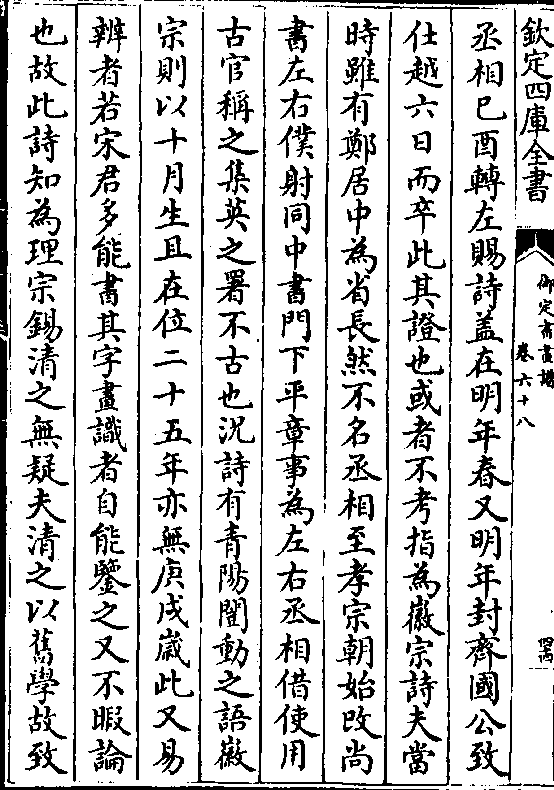 欽定四庫全書
御定書畫譜
卷六十八
丞相已酉轉左賜詩盖在明年春又明年封齊國公致
仕越六日而卒此其證也或者不考指為徽宗詩夫當
時雖有鄭居中為省長然不名丞相至孝宗朝始改尚
書左右僕射同中書門下平章事為左右丞相借使用
古官稱之集英之署不古也況詩有青陽闓動之語徽
宗則以十月生且在位二十五年亦無庚戌嵗此又易
辨者若宋君多能書其字畫識者自能鑒之又不暇論
也故此詩知為理宗錫清之無疑夫清之以舊學故致